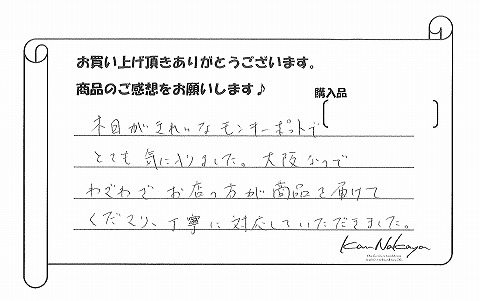 お買い上げ頂きありがとうございます。
商品のご感想をお願いします♪
購入品
木目がきれいなモンキーポットで
とても気に入りました。大阪なので
わざわざお店の方が商品を届けて
くださり、丁寧に対応していただきました。
Kan Nakaya